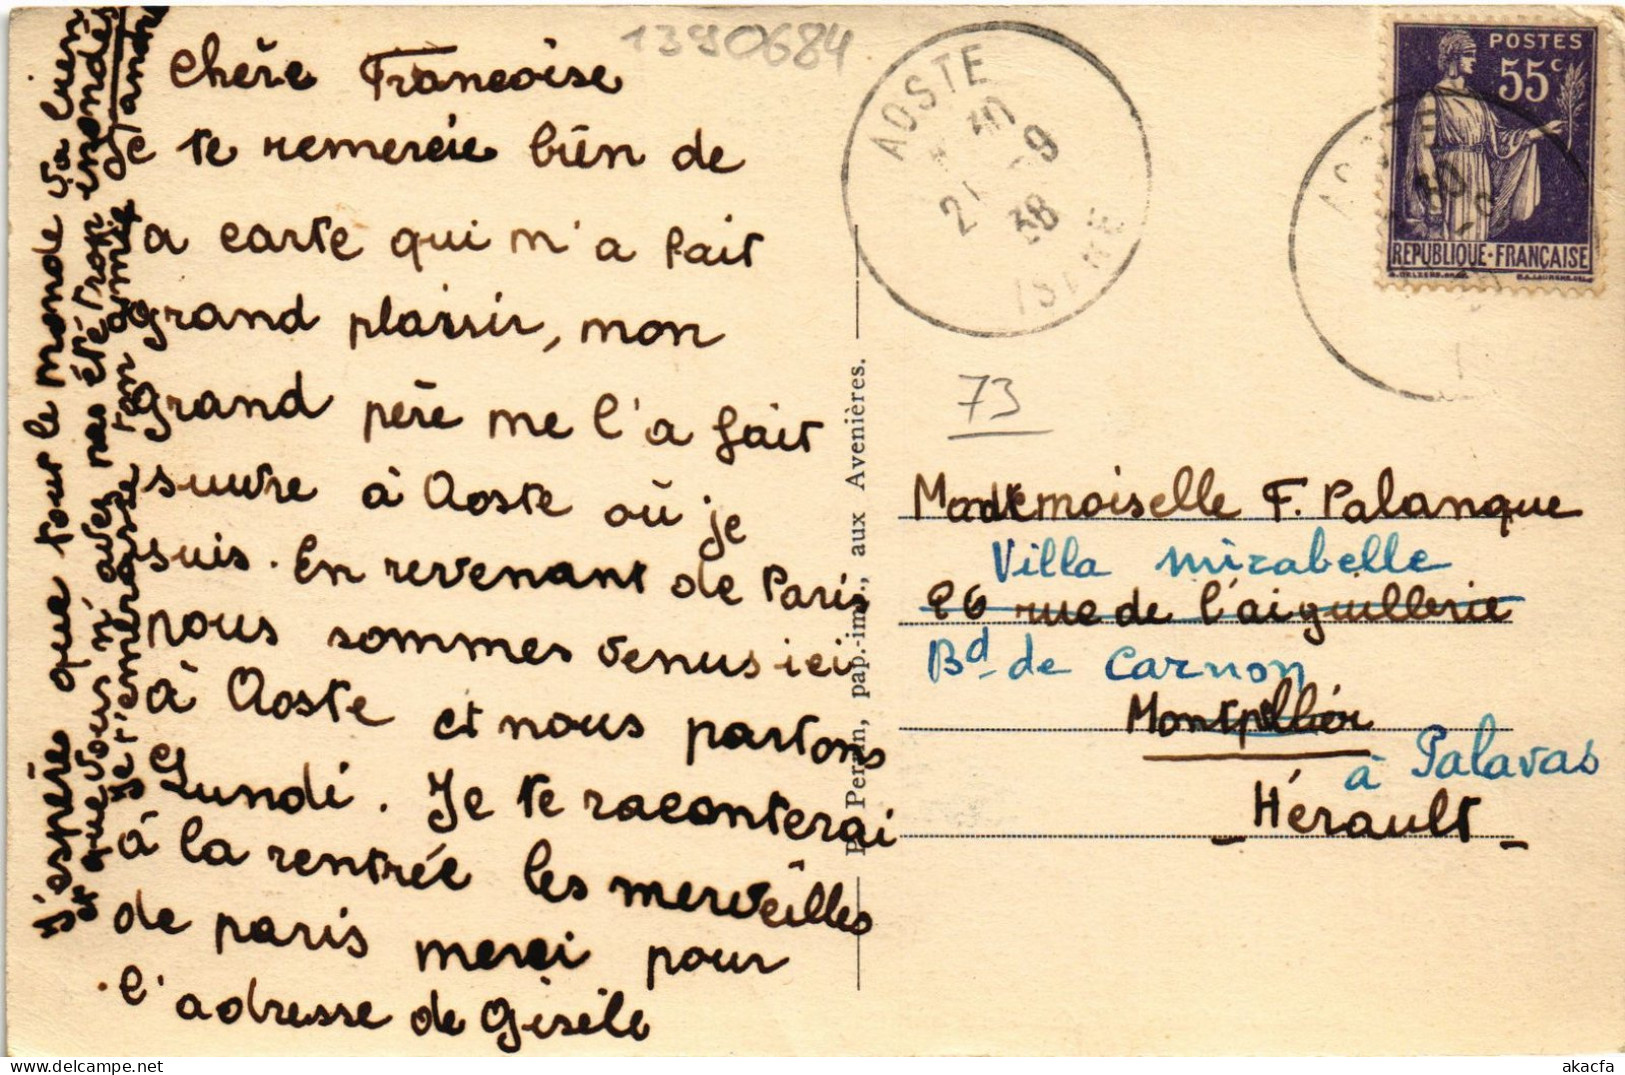 1390684
Chère Francoise
Je te remercie bien de
ta carte qui m'a fait
grand plaisir, mon
grand père me l'a fait
suivre à Aoste où je
suis. En revenant de Paris
nous sommes venus ici
à Aoste et nous partons
Lundi. Je te raconterai
à la rentrée les merveilles
de paris merci pour
l'adresse de Gisèle
J'espère que tout le monde va bien
et que vous n'avez pas été trop inondés
Je t'embrasse ton amie
P. Perrin, pap.-imp., aux Avenières.
AOSTE
21 -9
38
ISERE
POSTES
55c
REPUBLIQUE·FRANÇAISE
73
Mademoiselle F. Palanque
Villa Mirabelle
26 rue de l'aiguillerie
Bd de Carnon
Montpellier
à Palavas
Hérault
akacfa